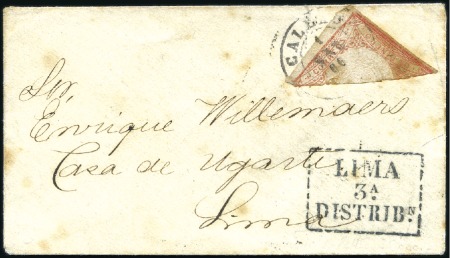 CALLAO
ENE
66
Sr.
Enrique Willemaers
Casa de Ugarte
Lima
LIMA
3.A
DISTRIBN.